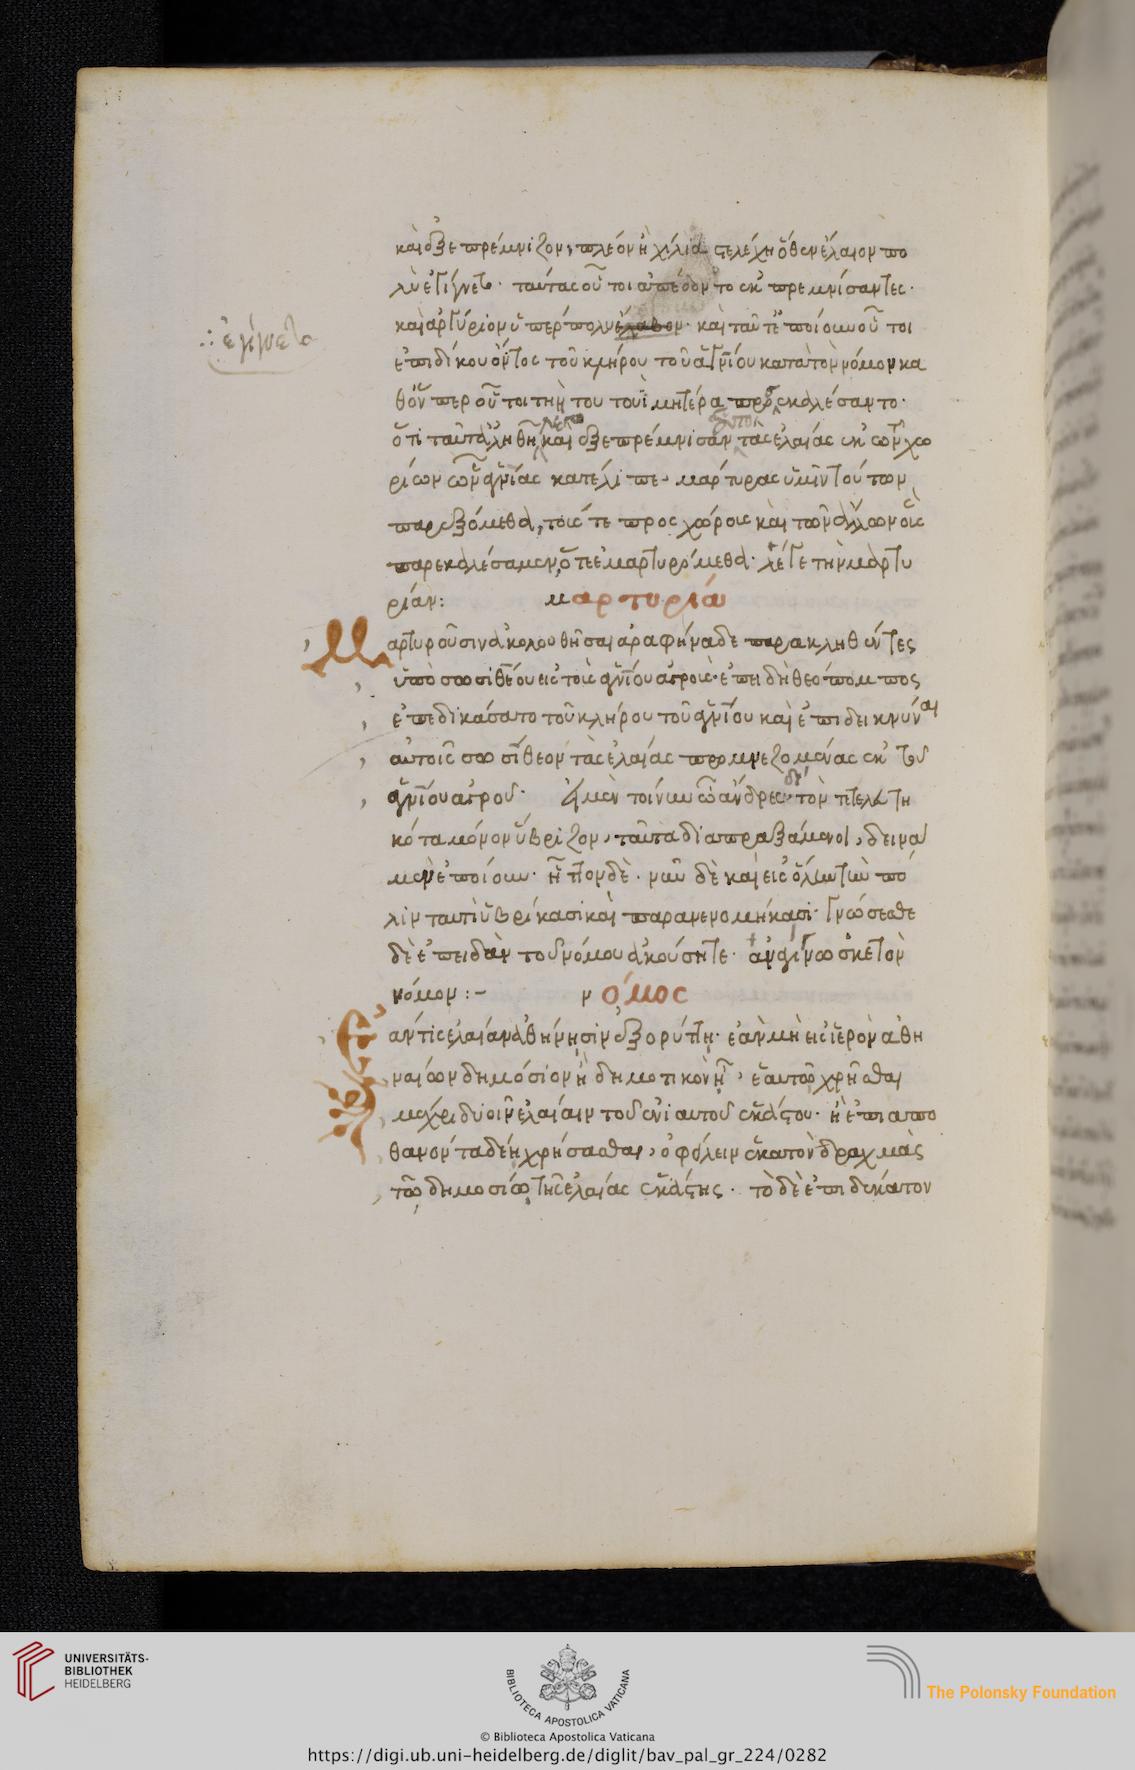 καὶ ἐξεπρέμνιζον, πλέον ἢ χίλια στελέχη ὅθεν ἔλαιον πο
λὺ ἐγίγνετο· ταύτας οὗτοι ἀπέδοντο ἐκπρεμνίσαντες·
καὶ ἀργύριον ὑπέρπολυ ἔλαβον· καὶ ταῦτ' ἐποίουν οὗτοι
∴ ἐγίγνετο
ἐπιδίκου ὄντος τοῦ κλήρου τοῦ ἁγνίου κατὰ τὸν νόμον κα
θ' ὅνπερ οὗτοι τὴν τουτουῒ μητέρα προσεκαλέσαντο·
ὅτι ταῦτ' ἀληθῆ καὶ ἐξεπρέμνισαν τὰς ἐλαίας ἐκ τῶν χω
ρίων ὧν ἁγνίας κατέλιπε, μάρτυρας ὑμῖν τούτων
παρεξόμεθα, τούς τε προσχώρους καὶ τῶν ἄλλων οὓς
παρεκαλέσαμεν, ὅτε ἐμαρτυρόμεθα· λέγε τὴν μαρτυ
ρίαν: μαρτυρία
Μαρτυροῦσιν ἀκολουθῆσαι ἀραφήναδε παρακληθέντες
ὑπὸ σωσιθέου εἰς τοὺς ἁγνίου ἀγρούς· ἐπειδὴ θεόπομπος
ἐπεδικάσατο τοῦ κλήρου τοῦ ἁγνίου καὶ ἐπιδεικνύναι
αὐτοῖς σωσίθεον τὰς ἐλαίας πρεμνιζομένας ἐκ τοῦ
ἁγνίου ἀγροῦ· Εἰ μὲν τοίνυν ὦ ἄνδρες δι' τὸν τετελευτη
κότα μόνον ὕβριζον, ταῦτα διαπραξάμενοι, δεινὰ
μὲν ἐποίουν· ἧττον δὲ· νῦν δὲ καὶ εἰς ὅλην τὴν πό
λιν ταυτὶ ὑβρίκασι καὶ παρανενομήκασι· γνώσεσθε
δὲ ἐπειδὰν τοῦ νόμου ἀκούσητε· ἀναγίνωσκε τὸν
νόμον:– νόμος
Ἐάν τις ἐλαίαν ἀθήνησιν ἐξορύττῃ· ἐὰν μὴ εἰς ἱερὸν ἀθη
ναίων δημόσιον ἢ δημοτικὸν ᾖ, ἢ ἑαυτῷ χρῆσθαι
μέχρι δυοῖν ἐλαίαιν τοῦ ἐνιαυτοῦ ἑκάστου· ἢ ἐπὶ ἀπο
θανόντα δέῃ χρήσασθαι, ὀφείλειν ἑκατὸν δραχμὰς
τῷ δημοσίῳ τῆς ἐλαίας ἑκάστης· τὸ δὲ ἐπιδέκατον
UNIVERSITÄTS-
BIBLIOTHEK
HEIDELBERG
BIBLIOTECA APOSTOLICA VATICANA
The Polonsky Foundation
© Biblioteca Apostolica Vaticana
https://digi.ub.uni-heidelberg.de/diglit/bav_pal_gr_224/0282